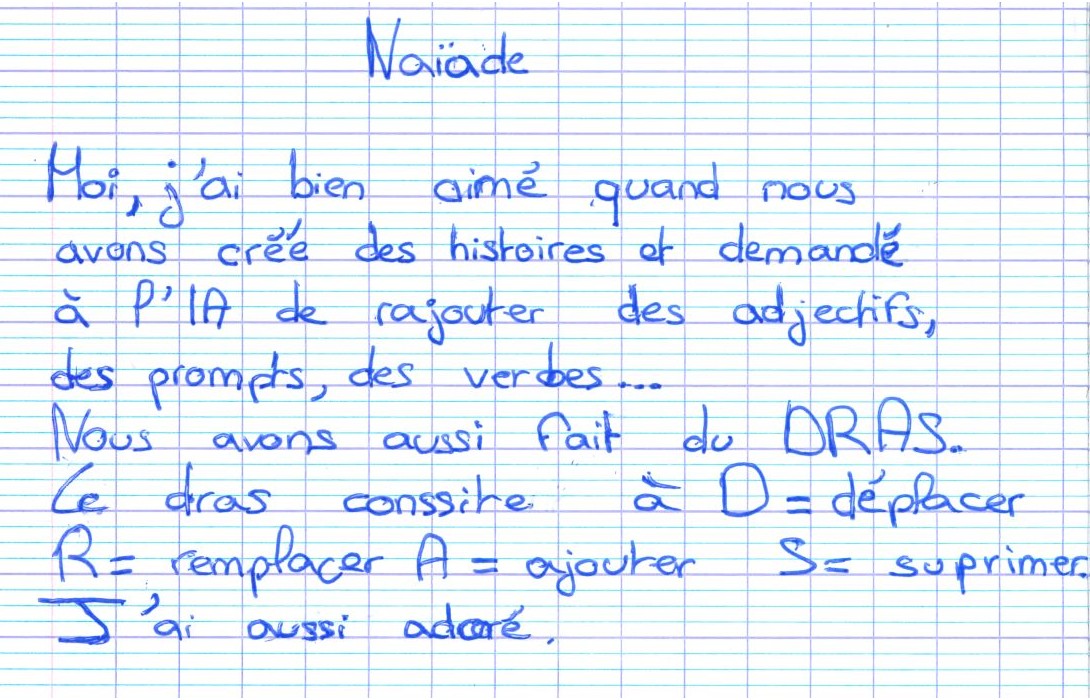 Naïade
Moi, j'ai bien aimé quand nous
avons créé des histoires et demandé
à l'IA de rajouter des adjectifs,
des prompts, des verbes...
Nous avons aussi fait du DRAS.
Le dras conssite à D = déplacer
R = remplacer A = ajouter S = suprimer.
J'ai aussi adoré.